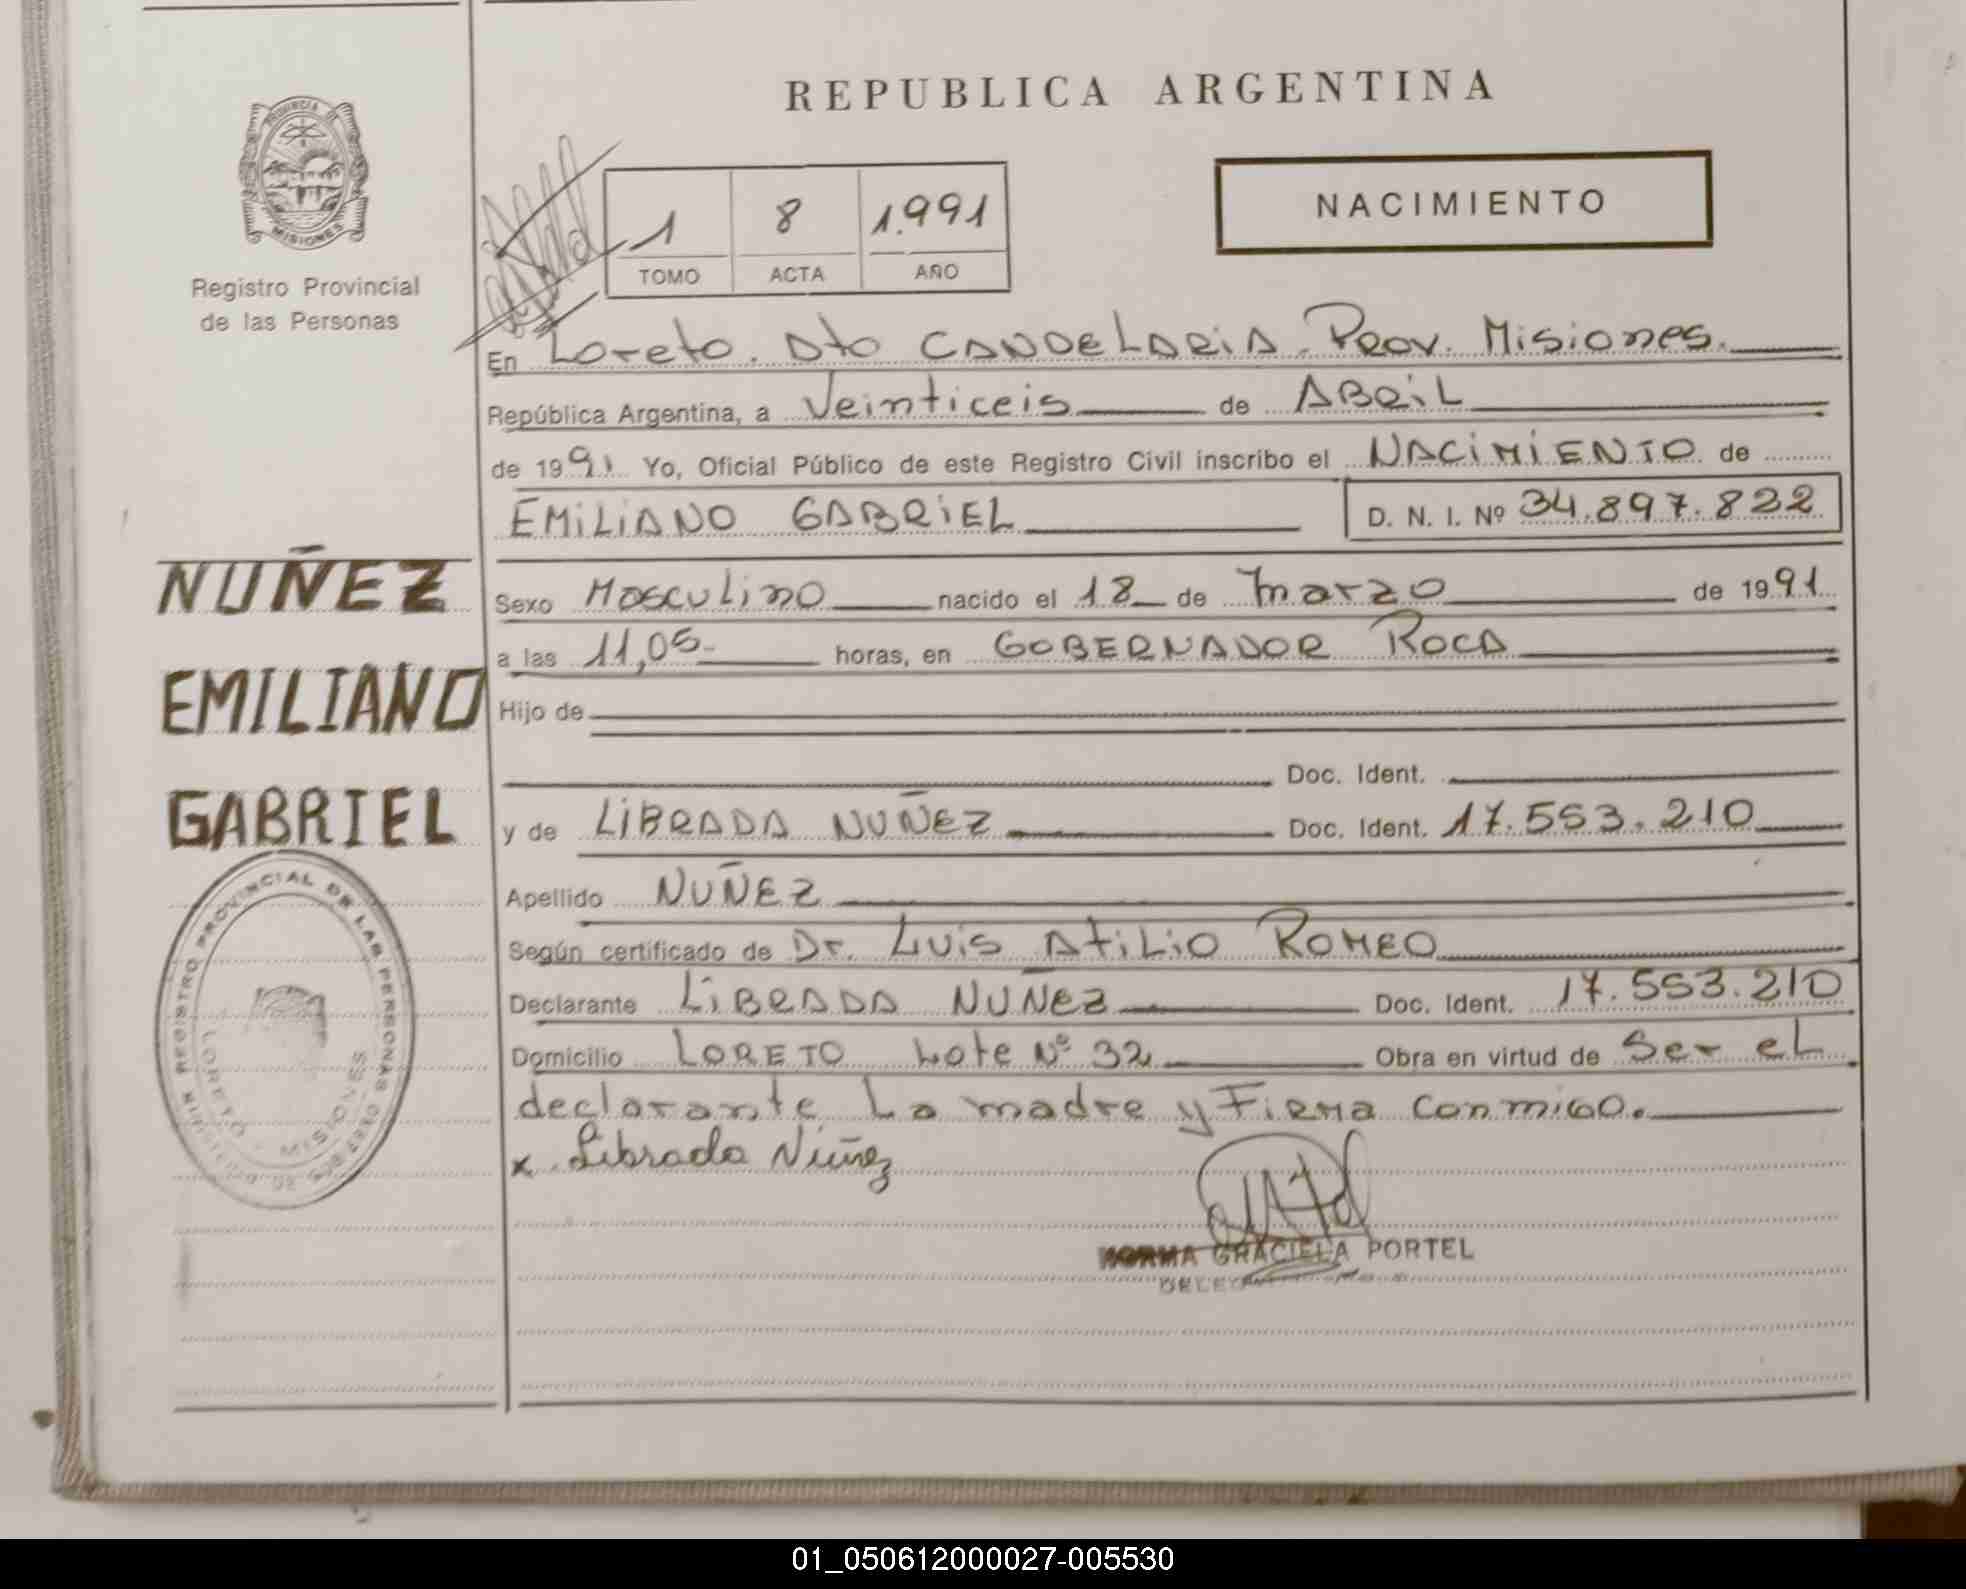 REPUBLICA ARGENTINA
PROVINCIA DE MISIONES
Registro Provincial
de las Personas
1 8 1.991
TOMO ACTA AÑO
NACIMIENTO
En Loreto. Dto CANDELARIA. Prov. Misiones.
República Argentina, a Veinticeis de ABRIL
de 1991 Yo, Oficial Público de este Registro Civil inscribo el NACIMIENTO de
EMILIANO GABRIEL D. N. I. Nº 34.897.822
NUÑEZ
EMILIANO
GABRIEL
Sexo MASCULINO nacido el 18 de marzo de 1991
a las 11,05- horas, en GOBERNADOR ROCA
Hijo de
Doc. Ident.
y de LIBRADA NUÑEZ Doc. Ident. 17.553.210
Apellido NUÑEZ
Según certificado de Dr. Luis Atilio ROMEO
Declarante LIBRADA NUÑEZ Doc. Ident. 17.553.210
Domicilio LORETO Lote Nº 32 Obra en virtud de Ser el
declarante La madre y Firma conmigo.
x Librada Núñez
NORMA GRACIELA PORTEL
REGISTRO PROVINCIAL DE LAS PERSONAS
LORETO - MISIONES
01_050612000027-005530